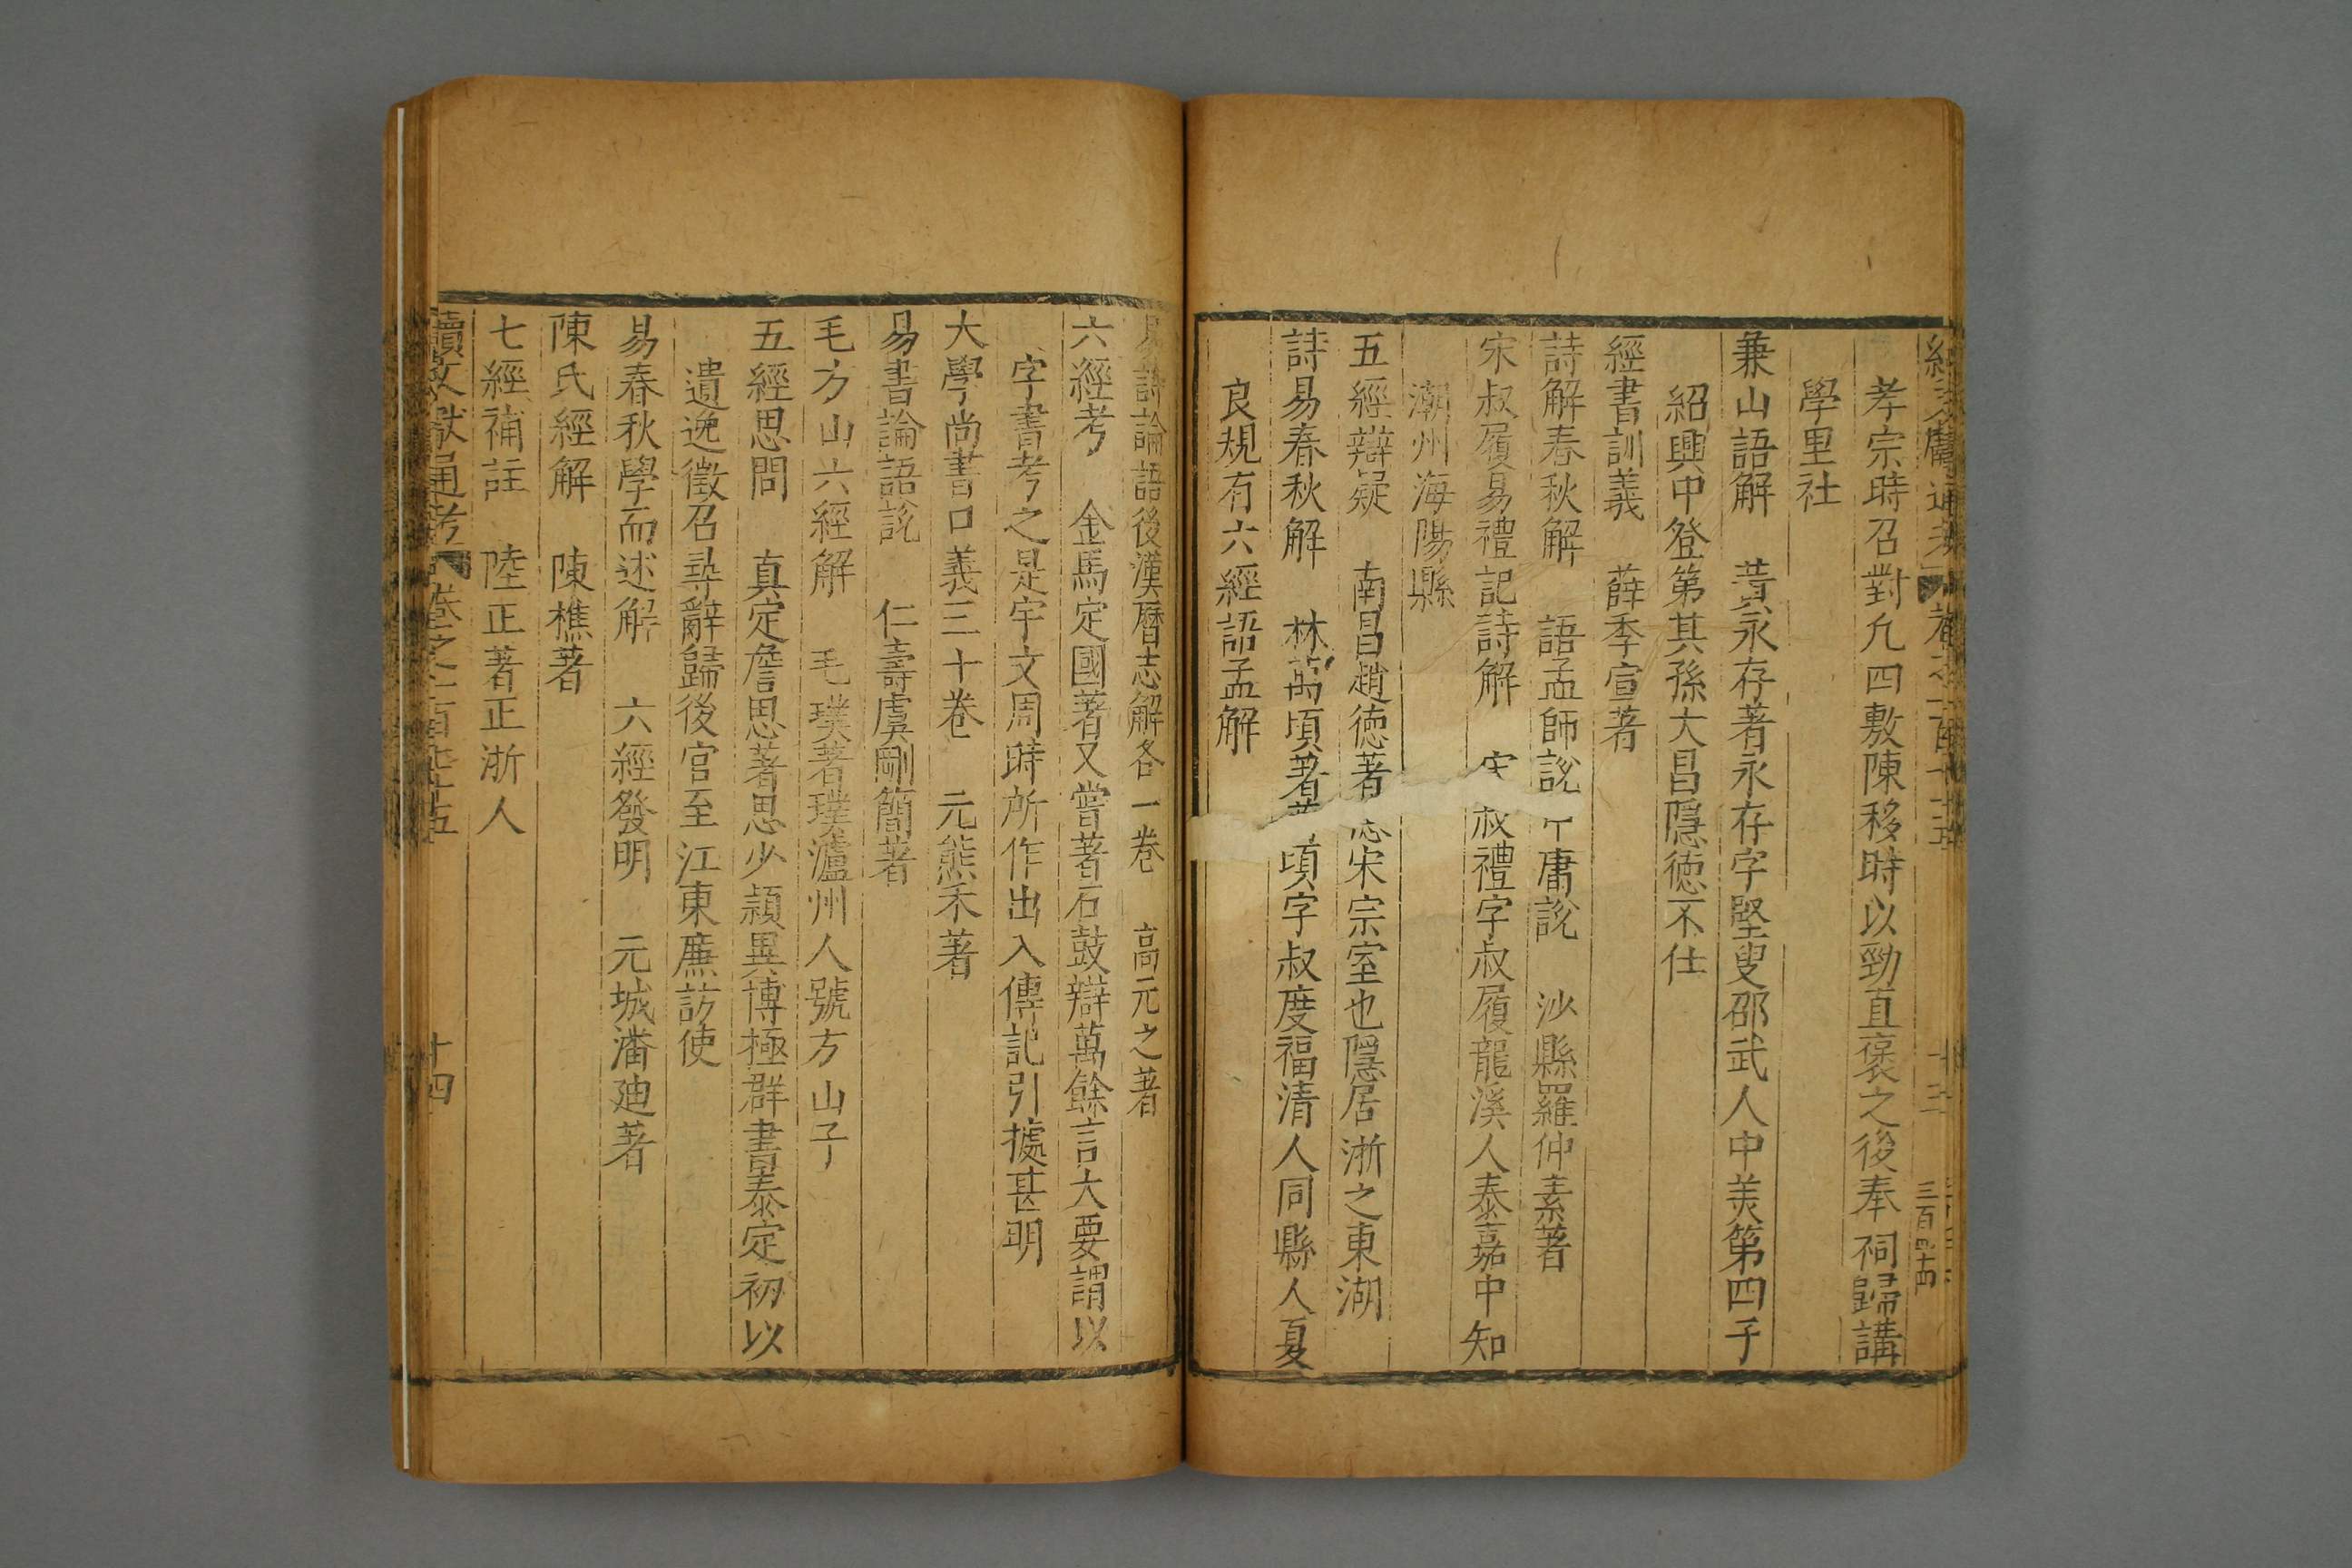 孝宗時召對凢四敷陳移時以勁直褒之後奉祠歸講
學里社
兼山語解　黃永存著永存字堅叟邵武人中美第四子
紹興中登第其孫大昌隱德不仕
經書訓義　薛季宣著
詩解春秋解　語孟師說　庸說　沙縣羅仲素著
宋叔履易禮記詩解　叔禮字叔履龍溪人泰嘉中知
潮州海陽縣
五經辯疑　南昌趙德著　宋宗室也隱居浙之東湖
詩易春秋解　林萬頃著　頃字叔度福清人同縣人夏
良規有六經語孟解
詩論語後漢曆志解各一卷　高元之著
六經考　金馬定國著又嘗著石鼓辯萬餘言大要謂以
字書考之是宇文周時所作出入傳記引據甚明
大學尚書口義三十卷　元熊禾著
易書論語說　仁壽虞剛簡著
毛方山六經解　毛璞著璞瀘州人號方山子
五經思問　真定詹思著思少穎異博極群書泰定初以
遺逸徵召尋辭歸後官至江東廉訪使
易春秋學而述解　六經發明　元城潘廸著
陳氏經解　陳樵著
七經補註　陸正著正浙人
續文獻通考　卷之一百七十五
十四